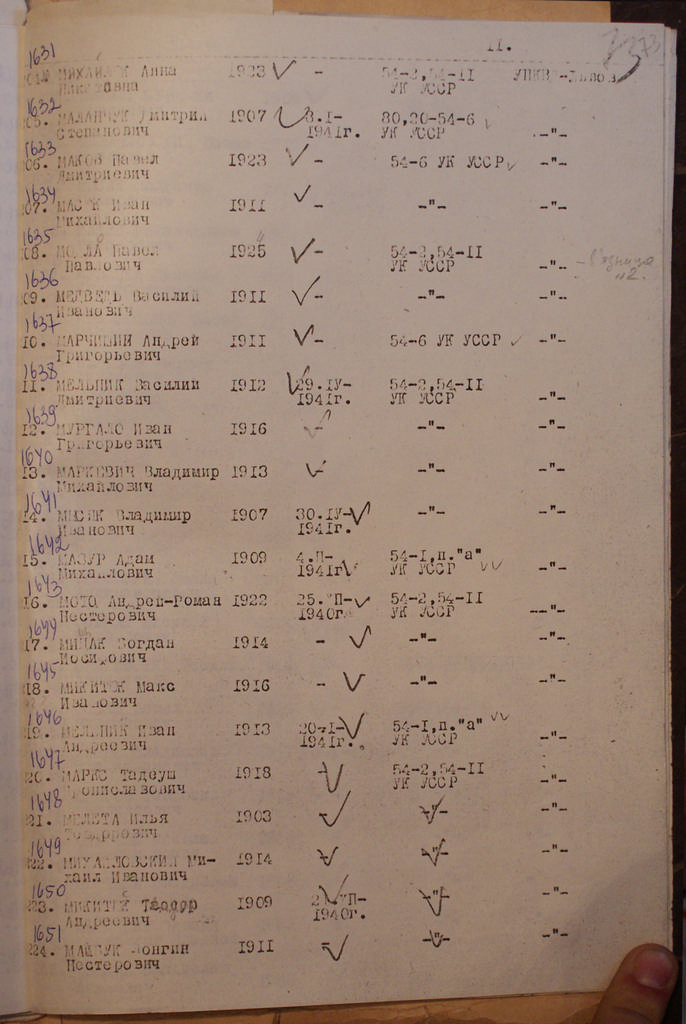 II.
273
1631
МИХАЙЛЮК Анна 1923 - 54-2,54-II УПКВД-Львов
УК УССР
1632
05. МАЛАНЧУК Дмитрий 1907 3.I- 80,20-54-6 -"-
Степанович 1941г. УК УССР
1633
06. МАКОВ Павел 1923 - 54-6 УК УССР -"-
Дмитриевич
1634
07. Иван 1911 - -"- -"-
Михайлович
1635
08. Павел 1925 - 54-2,54-II -"-
Павлович УК УССР
1636
09. МЕДВЕДЬ Василий 1911 - -"- -"-
Иванович
1637
10. Андрей 1911 - 54-6 УК УССР -"-
Григорьевич
1638
11. МЕЛЬНИК Василий 1912 29.IУ- 54-2,54-II -"-
Дмитриевич 1941г. УК УССР
1639
12. МУРГАЛО Иван 1916 - -"- -"-
Григорьевич
1640
13. МАРКЕВИЧ Владимир 1913 - -"- -"-
Михайлович
1641
14. Владимир 1907 30.IУ- -"- -"-
Иванович 1941г.
1642
15. МАЗУР Адам 1909 4.П- 54-I,п."а" -"-
Михайлович 1941г. УК УССР
1643
16. МОТО Андрей-Роман 1922 25. 54-2,54-II --"-
Нестерович 1940г. УК УССР
1644
17. Богдан 1914 - -"- -"-
Иосифович
1645
18. МИКИТЮК Макс 1916 - -"- -"-
Иванович
1646
19. МЕЛЬНИК Иван 1913 20-I- 54-I,п."а" -"-
Андреевич 1941г. УК УССР
1647
20. МАРКО Тадеуш 1918 - 54-2,54-II -"-
Брониславович УК УССР
1648
21. МЕЛЕТА Илья 1903 - -"- -"-
Теодорович
1649
22. МИХАЙЛОВСКИЙ Ми- 1914 - -"- -"-
хаил Иванович
1650
23. МИКИТЮК Теодор 1909 -"- -"-
Андреевич 1940г.
1651
24. Лонгин 1911 - -"- -"-
Нестерович